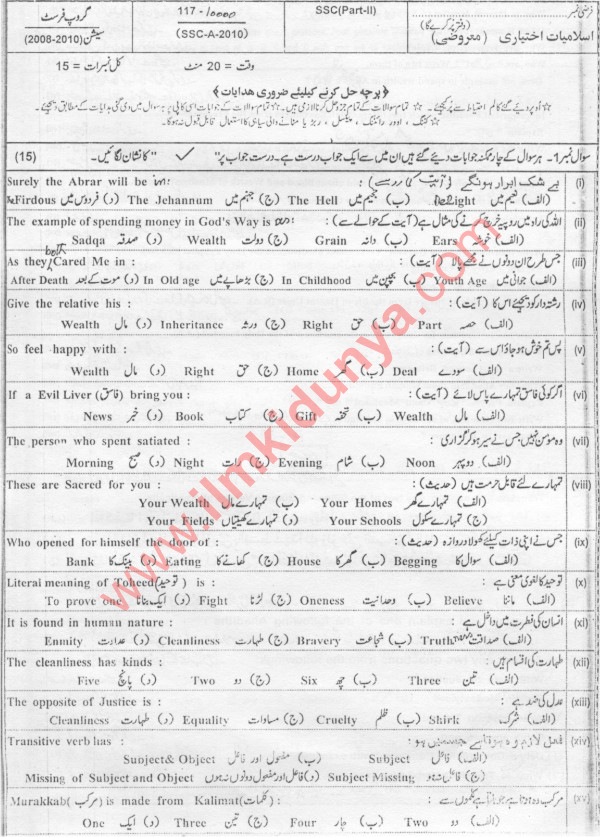 گروپ فرسٹ
سیشن (2008-2010)
117 - 10000
(SSC-A-2010)
SSC(Part-II)
فرضی نمبر
(دفتر پُر کرے گا)
اسلامیات اختیاری (معروضی)
وقت = 20 منٹ
کل نمبرات = 15
﴿ پرچہ حل کرنے کیلئے ضروری ہدایات ﴾
☆ اُوپر دیئے گئے کالم احتیاط سے پُر کیجیئے۔ ☆ تمام سوالات کے تمام جزو حل کرنا لازمی ہیں۔ ☆ تمام سوالات کے جوابات اسی کاپی پر ہر سوال میں دی گئی ہدایات کے مطابق دیجیئے۔
☆ کٹنگ، اوور رائٹنگ، پینسل، ربڑ یا مٹانے والی سیاہی کا استعمال قابل قبول نہ ہوگا۔
سوال نمبر 1۔ ہر سوال کے چار ممکنہ جوابات دیئے گئے ہیں ان میں سے ایک جواب درست ہے۔ درست جواب پر " ✓ " کا نشان لگائیں۔ (15)
(i) بے شک ابرار ہونگے (آیت کی رو سے): Surely the Abrar will be in:
(الف) نعیم میں Delight (ب) جحیم میں The Hell (ج) جہنم میں The Jehannum (د) فردوس میں Firdous
(ii) اللہ کی راہ میں روپیہ خرچ کرنے کی مثال ہے (آیت کے حوالے سے): The example of spending money in God's Way is as:
(الف) خوشہ Ears (ب) دانہ Grain (ج) دولت Wealth (د) صدقہ Sadqa
(iii) جس طرح ان دونوں نے مجھے پالا (آیت): As they both Cared Me in :
(الف) جوانی میں Youth Age (ب) بچپن میں In Childhood (ج) بڑھاپے میں In Old age (د) موت کے بعد After Death
(iv) رشتہ دار کو دیجیئے اس کا (آیت): Give the relative his :
(الف) حصہ Part (ب) حق Right (ج) ورثہ Inheritance (د) مال Wealth
(v) پس تم خوش ہو جاؤ اس سے (آیت): So feel happy with :
(الف) سودے Deal (ب) گھر Home (ج) حق Right (د) مال Wealth
(vi) اگر کوئی فاسق تمہارے پاس لائے (آیت): If a Evil Liver (فاسق) bring you :
(الف) مال Wealth (ب) تحفہ Gift (ج) کتاب Book (د) خبر News
(vii) وہ مومن نہیں جس نے سیر ہو کر گزاری: The person who spent satiated :
(الف) دوپہر Noon (ب) شام Evening (ج) رات Night (د) صبح Morning
(viii) تمہارے لئے قابل حرمت ہیں (حدیث): These are Sacred for you :
(الف) تمہارے گھر Your Homes (ب) تمہارے مال Your Wealth
(ج) تمہارے سکول Your Schools (د) تمہارے کھیتیاں Your Fields
(ix) جس نے اپنی ذات کیلئے کھولا دروازہ (حدیث): Who opened for himself the door of :
(الف) سوال کا Begging (ب) گھر کا House (ج) کھانے کا Eating (د) بینک کا Bank
(x) توحید کا لغوی معنی ہے: Literal meaning of Toheed (توحید) is :
(الف) ماننا Believe (ب) وحدانیت Oneness (ج) لڑنا Fight (د) ایک بنانا To prove one
(xi) انسان کی فطرت میں داخل ہے: It is found in human nature :
(الف) صداقت Truth (ب) شجاعت Bravery (ج) طہارت Cleanliness (د) عداوت Enmity
(xii) طہارت کی اقسام ہیں: The cleanliness has kinds :
(الف) تین Three (ب) چھ Six (ج) دو Two (د) پانچ Five
(xiii) عدل کی ضد ہے: The opposite of Justice is :
(الف) شرک Shirk (ب) ظلم Cruelty (ج) مساوات Equality (د) طہارت Cleanliness
(xiv) فعل لازم وہ ہوتا ہے جس میں ہو: Transitive verb has :
(الف) فاعل Subject (ب) مفعول اور فاعل Suoject& Object
(ج) فاعل نہ ہو Subject Missing (د) فاعل اور مفعول دونوں نہ ہوں Missing of Subject and Object
(xv) مرکب وہ ہوتا ہے جو بنتا ہے کلموں سے: Murakkab (مرکب) is made from Kalimat (کلمات):
(الف) دو Two (ب) چار Four (ج) تین Three (د) ایک One
www.ilmkidunya.com